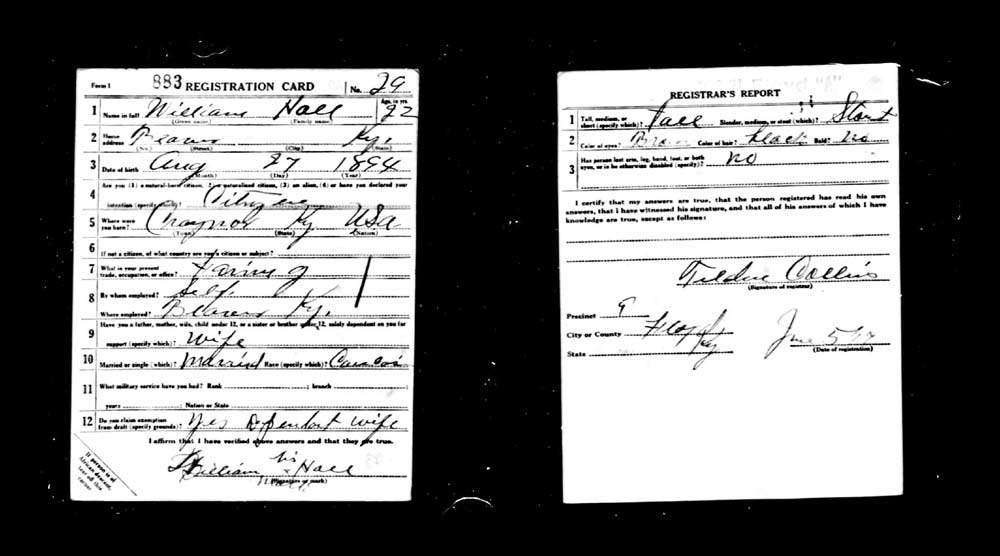 Form 1 883 REGISTRATION CARD No. 29
1 Name in full William Hall Age, in yrs. 22
(Given name) (Family name)
2 Home address Beaver Ky.
(No.) (Street) (City) (State)
3 Date of birth Aug 27 1894
(Month) (Day) (Year)
4 Are you (1) a natural-born citizen, (2) a naturalized citizen, (3) an alien, (4) or have you declared your
intention (specify which)? Citizen
5 Where were you born? Ky USA
(Town) (State) (Nation)
6 If not a citizen, of what country are you a citizen or subject?
7 What is your present trade, occupation, or office? Farming
8 By whom employed? Self.
Where employed? Beaver Ky.
9 Have you a father, mother, wife, child under 12, or a sister or brother under 12, solely dependent on you for
support (specify which)? Wife
10 Married or single (which)? Married Race (specify which)?
11 What military service have you had? Rank ; branch ;
years ; Nation or State
12 Do you claim exemption from draft (specify grounds)? Yes Dependant wife
I affirm that I have verified above answers and that they are true.
William his x Hall
(Signature or mark)
If person is of
African descent,
tear off this
corner
REGISTRAR'S REPORT
1 Tall, medium, or short (specify which)? Tall Slender, medium, or stout (which)? Stout
2 Color of eyes? Brown Color of hair? Black Bald? No
3 Has person lost arm, leg, hand, foot, or both eyes, or is he otherwise disabled (specify)? No
I certify that my answers are true, that the person registered has read his own
answers, that I have witnessed his signature, and that all of his answers of which I have
knowledge are true, except as follows:
Tilden Collins
(Signature of registrar)
Precinct 9
City or County Floyd
State Ky June 5/17
(Date of registration)